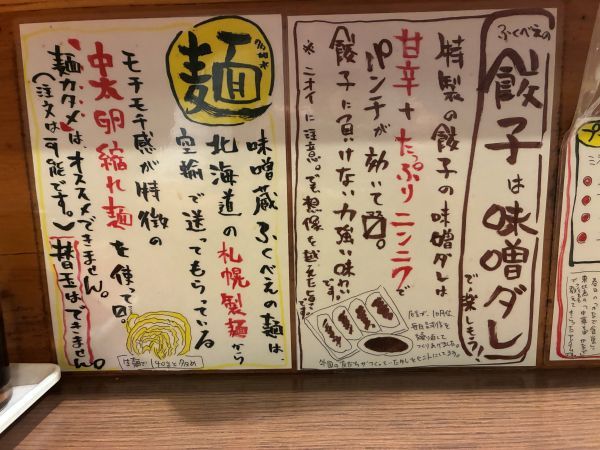 ふくべえの
餃子は味噌ダレ
で楽しもう！
特製の餃子の味噌ダレは
甘辛+たっぷりニンニクで
パンチが効いて〼。
餃子に負けない力強い味わい
です。
＊ニオイに注意。でも想像を越えた
麺
味噌蔵ふくべえの麺は、
北海道の札幌製麺から
空輸で送ってもらっている
モチモチ感が特徴の
中太卵縮れ麺を使って〼。
麺カタメは、オススメできません。
（注文は可能です。）替玉はできません。
生麺で140gと多め